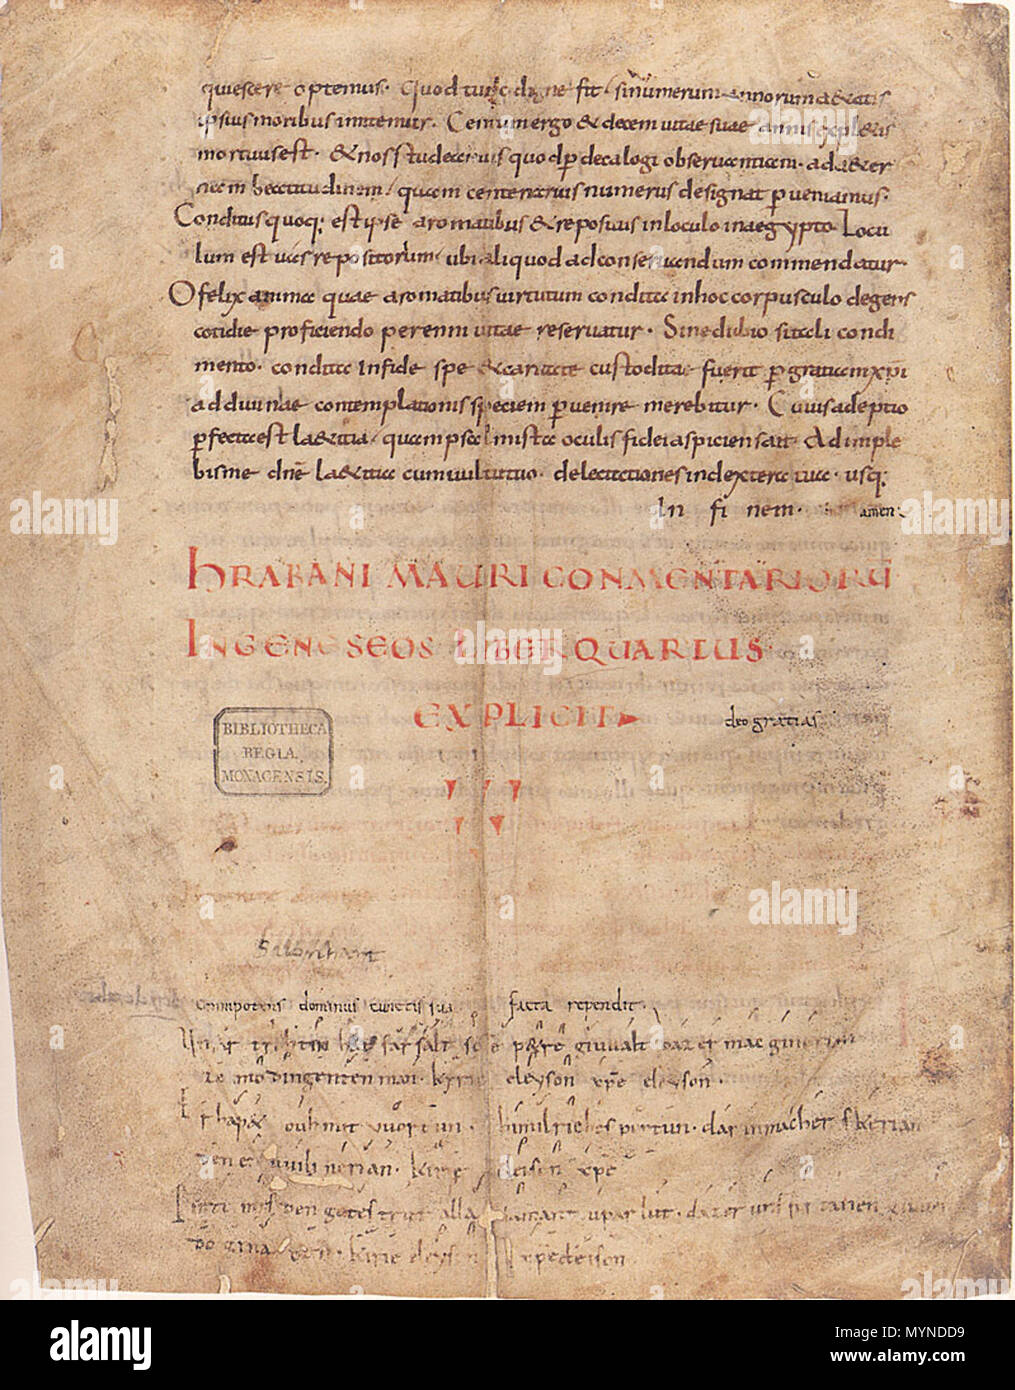 quiescere optemus. Quod tunc digne fit, si numerum annorum aetatis
ipsius moribus imitemur. Centum ergo & decem uitae suae annis expletis
mortuus est. & nos studeamus quod p decalogi obseruantiam. ad aeter
nam beatitudinem, quam centenarius numerus designat p ueniamus.
Conditus quoq; est ipse aromatibus & repositus in loculo in aegypto. Locu
lum est uas repositorium, ubi aliquod ad conseruandum commendatur.
O felix anima quae aromatibus uirtutum condita in hoc corpusculo degens
cotidie proficiendo perenni uitae reseruatur. Sine dubio si tali condi
mento. condita in fide spe & caritate custodita fuerit p gratiam xpi
ad diuinae contemplationis speciem p uenire merebitur. Cuius adeptio
pfecta est laetitia, quam psalmista oculis fidei aspiciens ait. Adimple
bis me dne laetitia cum uultu tuo. delectationes in dextera tua. usq;
In fi nem. amen.
HRABANI MAURI CONMENTARIORU
IN GENESEOS LIBER QUARTUS
EXPLICIT
deo gratias
BIBLIOTHECA
REGIA
MONACENSIS.
omnipotens dominus cunctis sua facta rependit.
Unsar trohtin hat farsalt sancte petre giuualt daz er mac ginerian
ze imo dingenten man. kyrie eleyson xpe eleyson.
Er hapet ouh mit vuortun. himilriches portun. dar in mach er skerian
den er uuili nerian. kirie eleison xpe
Pittemes den gotes trut alla samant uparlut. daz er uns firtanen
giuuerdo ginaden. kirie eleyson xpe eleison
alamy
www.alamy.com
Image ID: MYNDD9